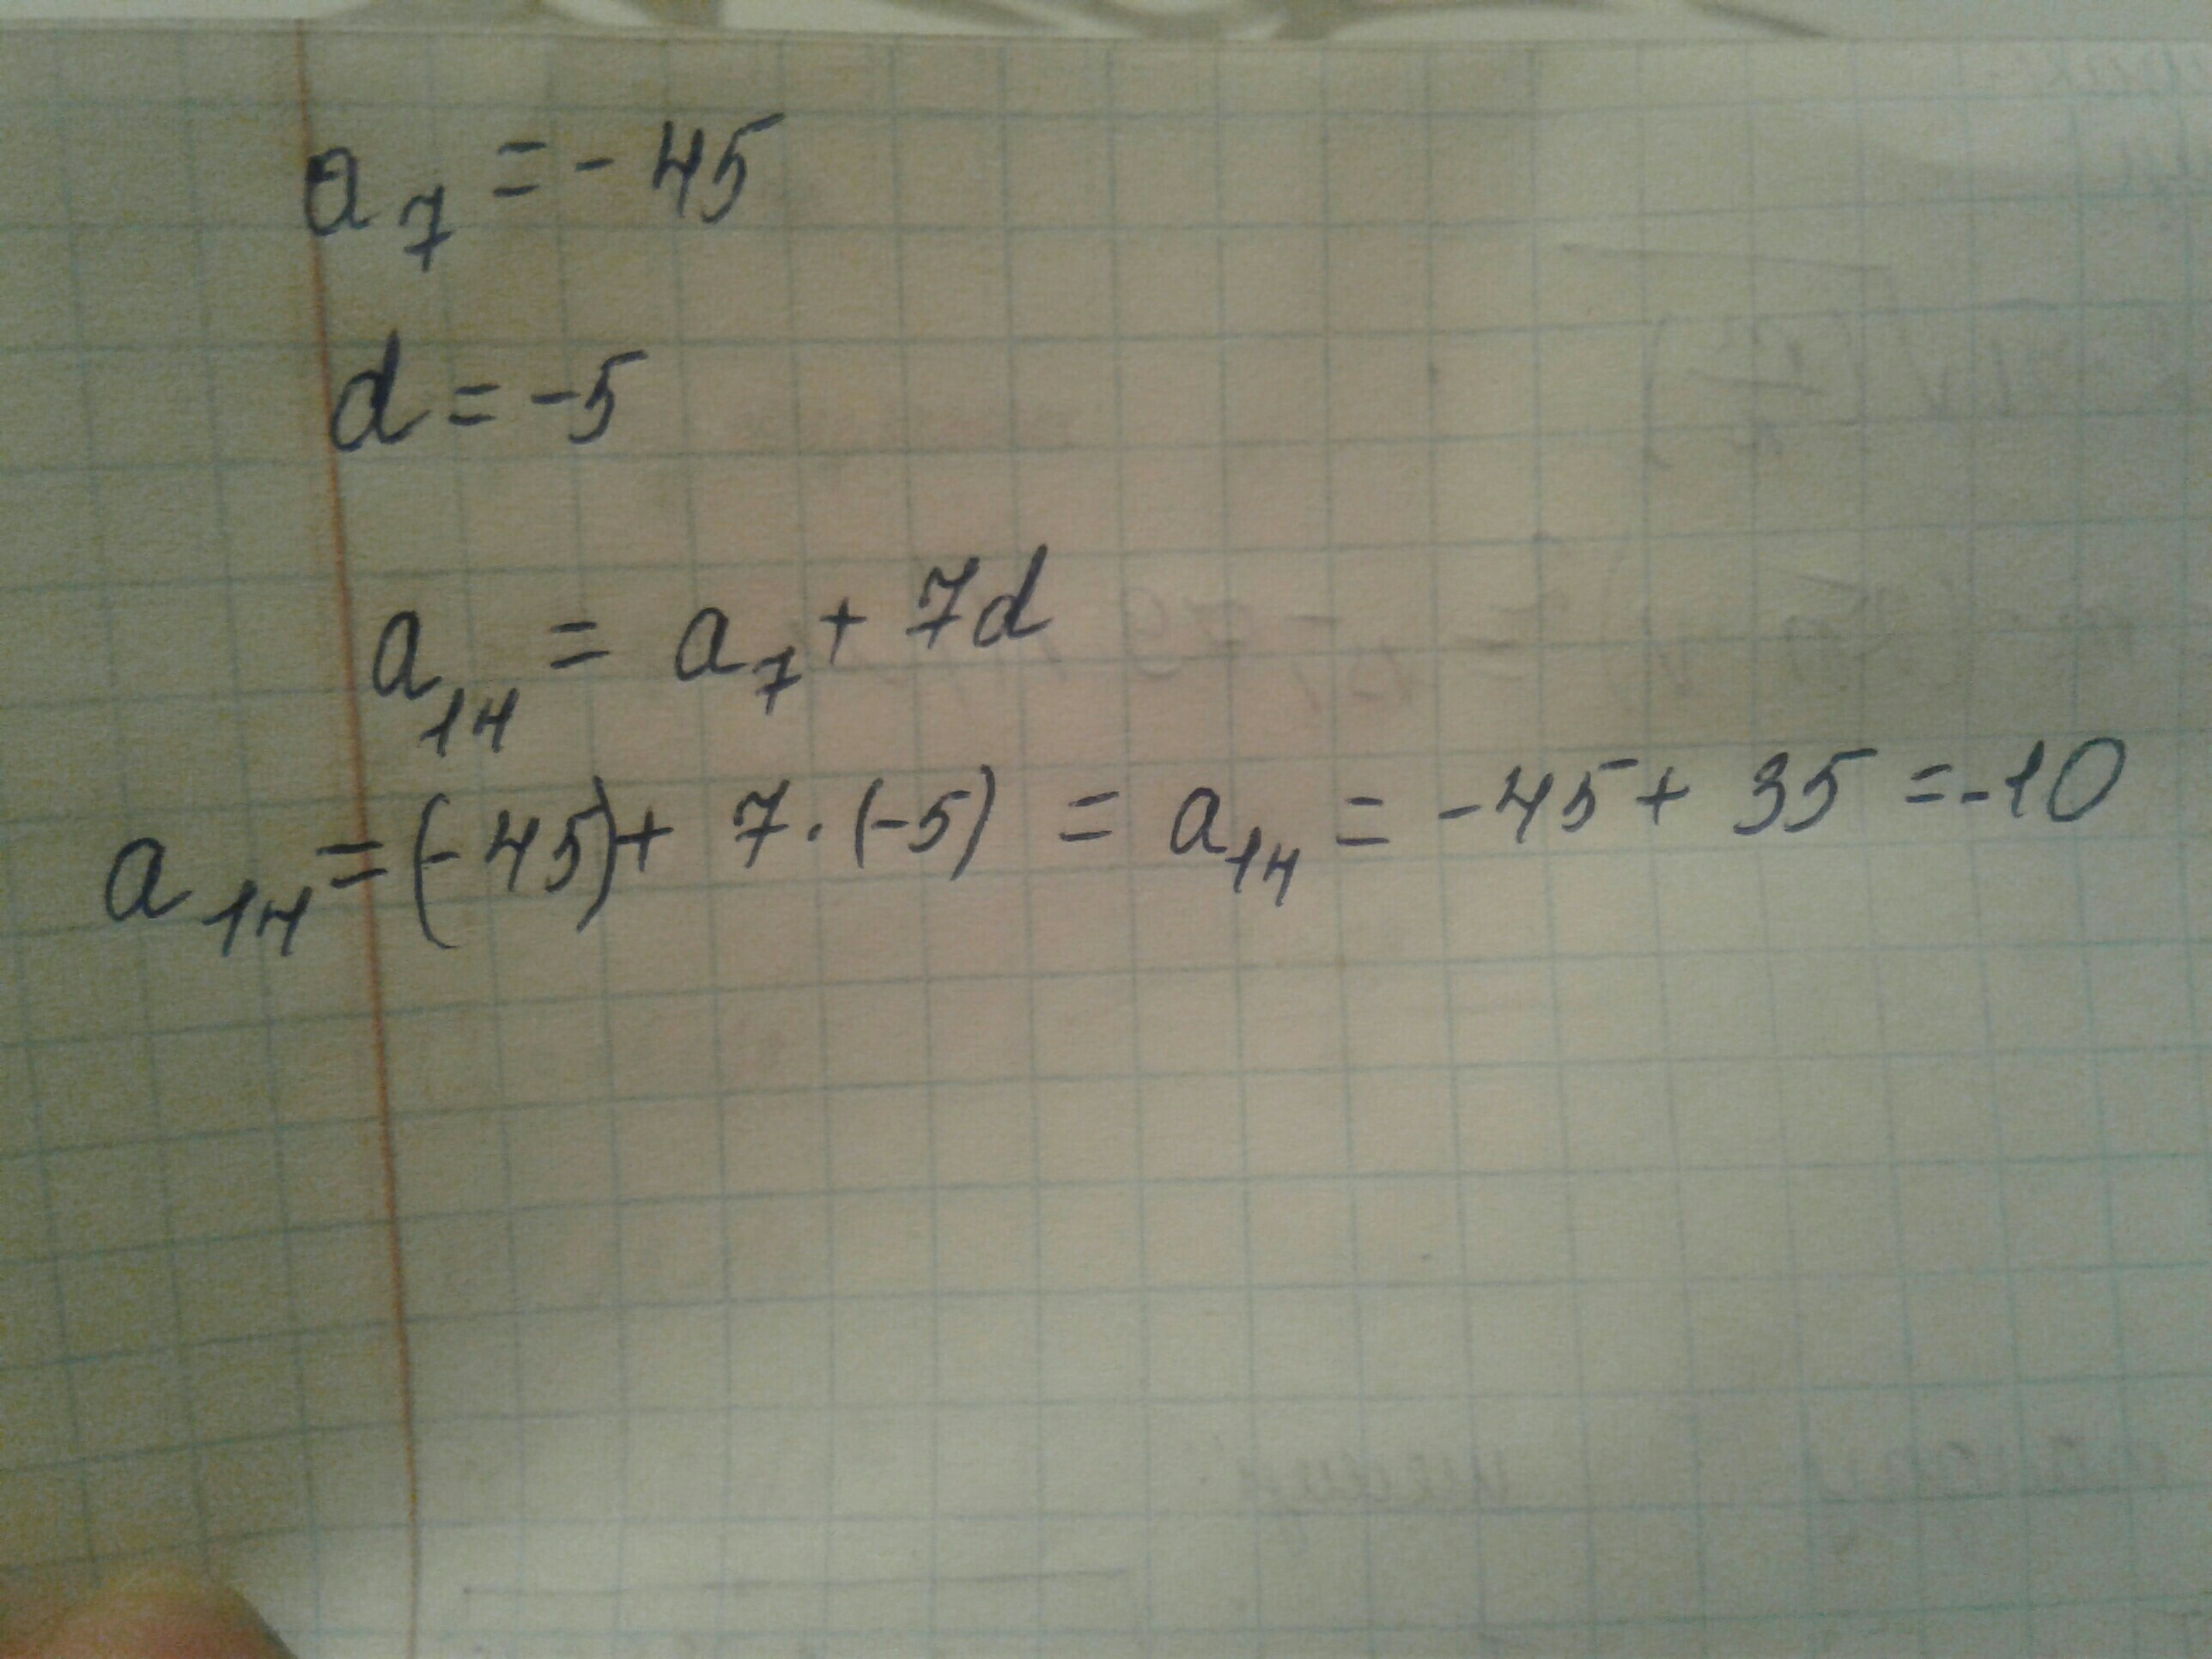 a₇ = - 45
d = -5
a₁₄ = a₇ + 7d
a₁₄ = (-45) + 7 · (-5) = a₁₄ = -45 + 35 = -10